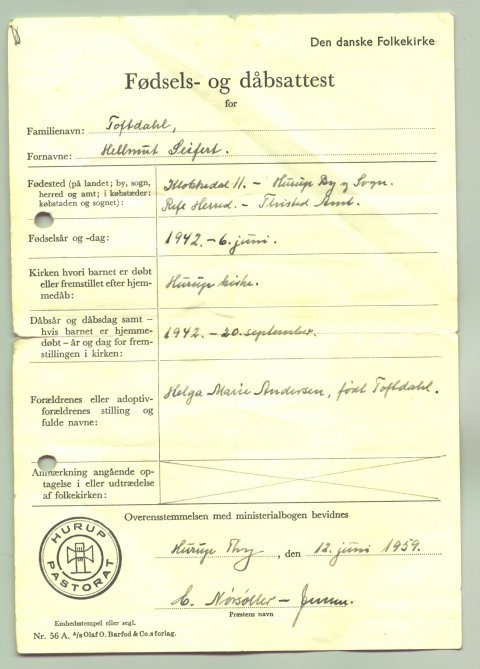 Den danske Folkekirke
Fødsels- og dåbsattest
for
Familienavn: Toftdahl,
Fornavne: Hellmut Seifert.
Fødested (på landet; by, sogn,
herred og amt; i købstæder:
købstaden og sognet):
11. – Hurup By og Sogn.
Refs Herred. – Thisted Amt.
Fødselsår og -dag: 1942. – 6. juni.
Kirken hvori barnet er døbt
eller fremstillet efter hjem-
medåb:
Hurup kirke.
Dåbsår og dåbsdag samt –
hvis barnet er hjemme-
døbt – år og dag for frem-
stillingen i kirken:
1942. – 20. september.
Forældrenes eller adoptiv-
forældrenes stilling og
fulde navne:
Helga Marie Andersen, født Toftdahl.
Anmærkning angående op-
tagelse i eller udtrædelse
af folkekirken:
Overensstemmelsen med ministerialbogen bevidnes
Hurup Thy, den 12. juni 1959.
HURUP
PASTORAT
Jensen.
Præstens navn
Embedsstempel eller segl.
Nr. 56 A. A/s Olaf O. Barfod & Co.s forlag.